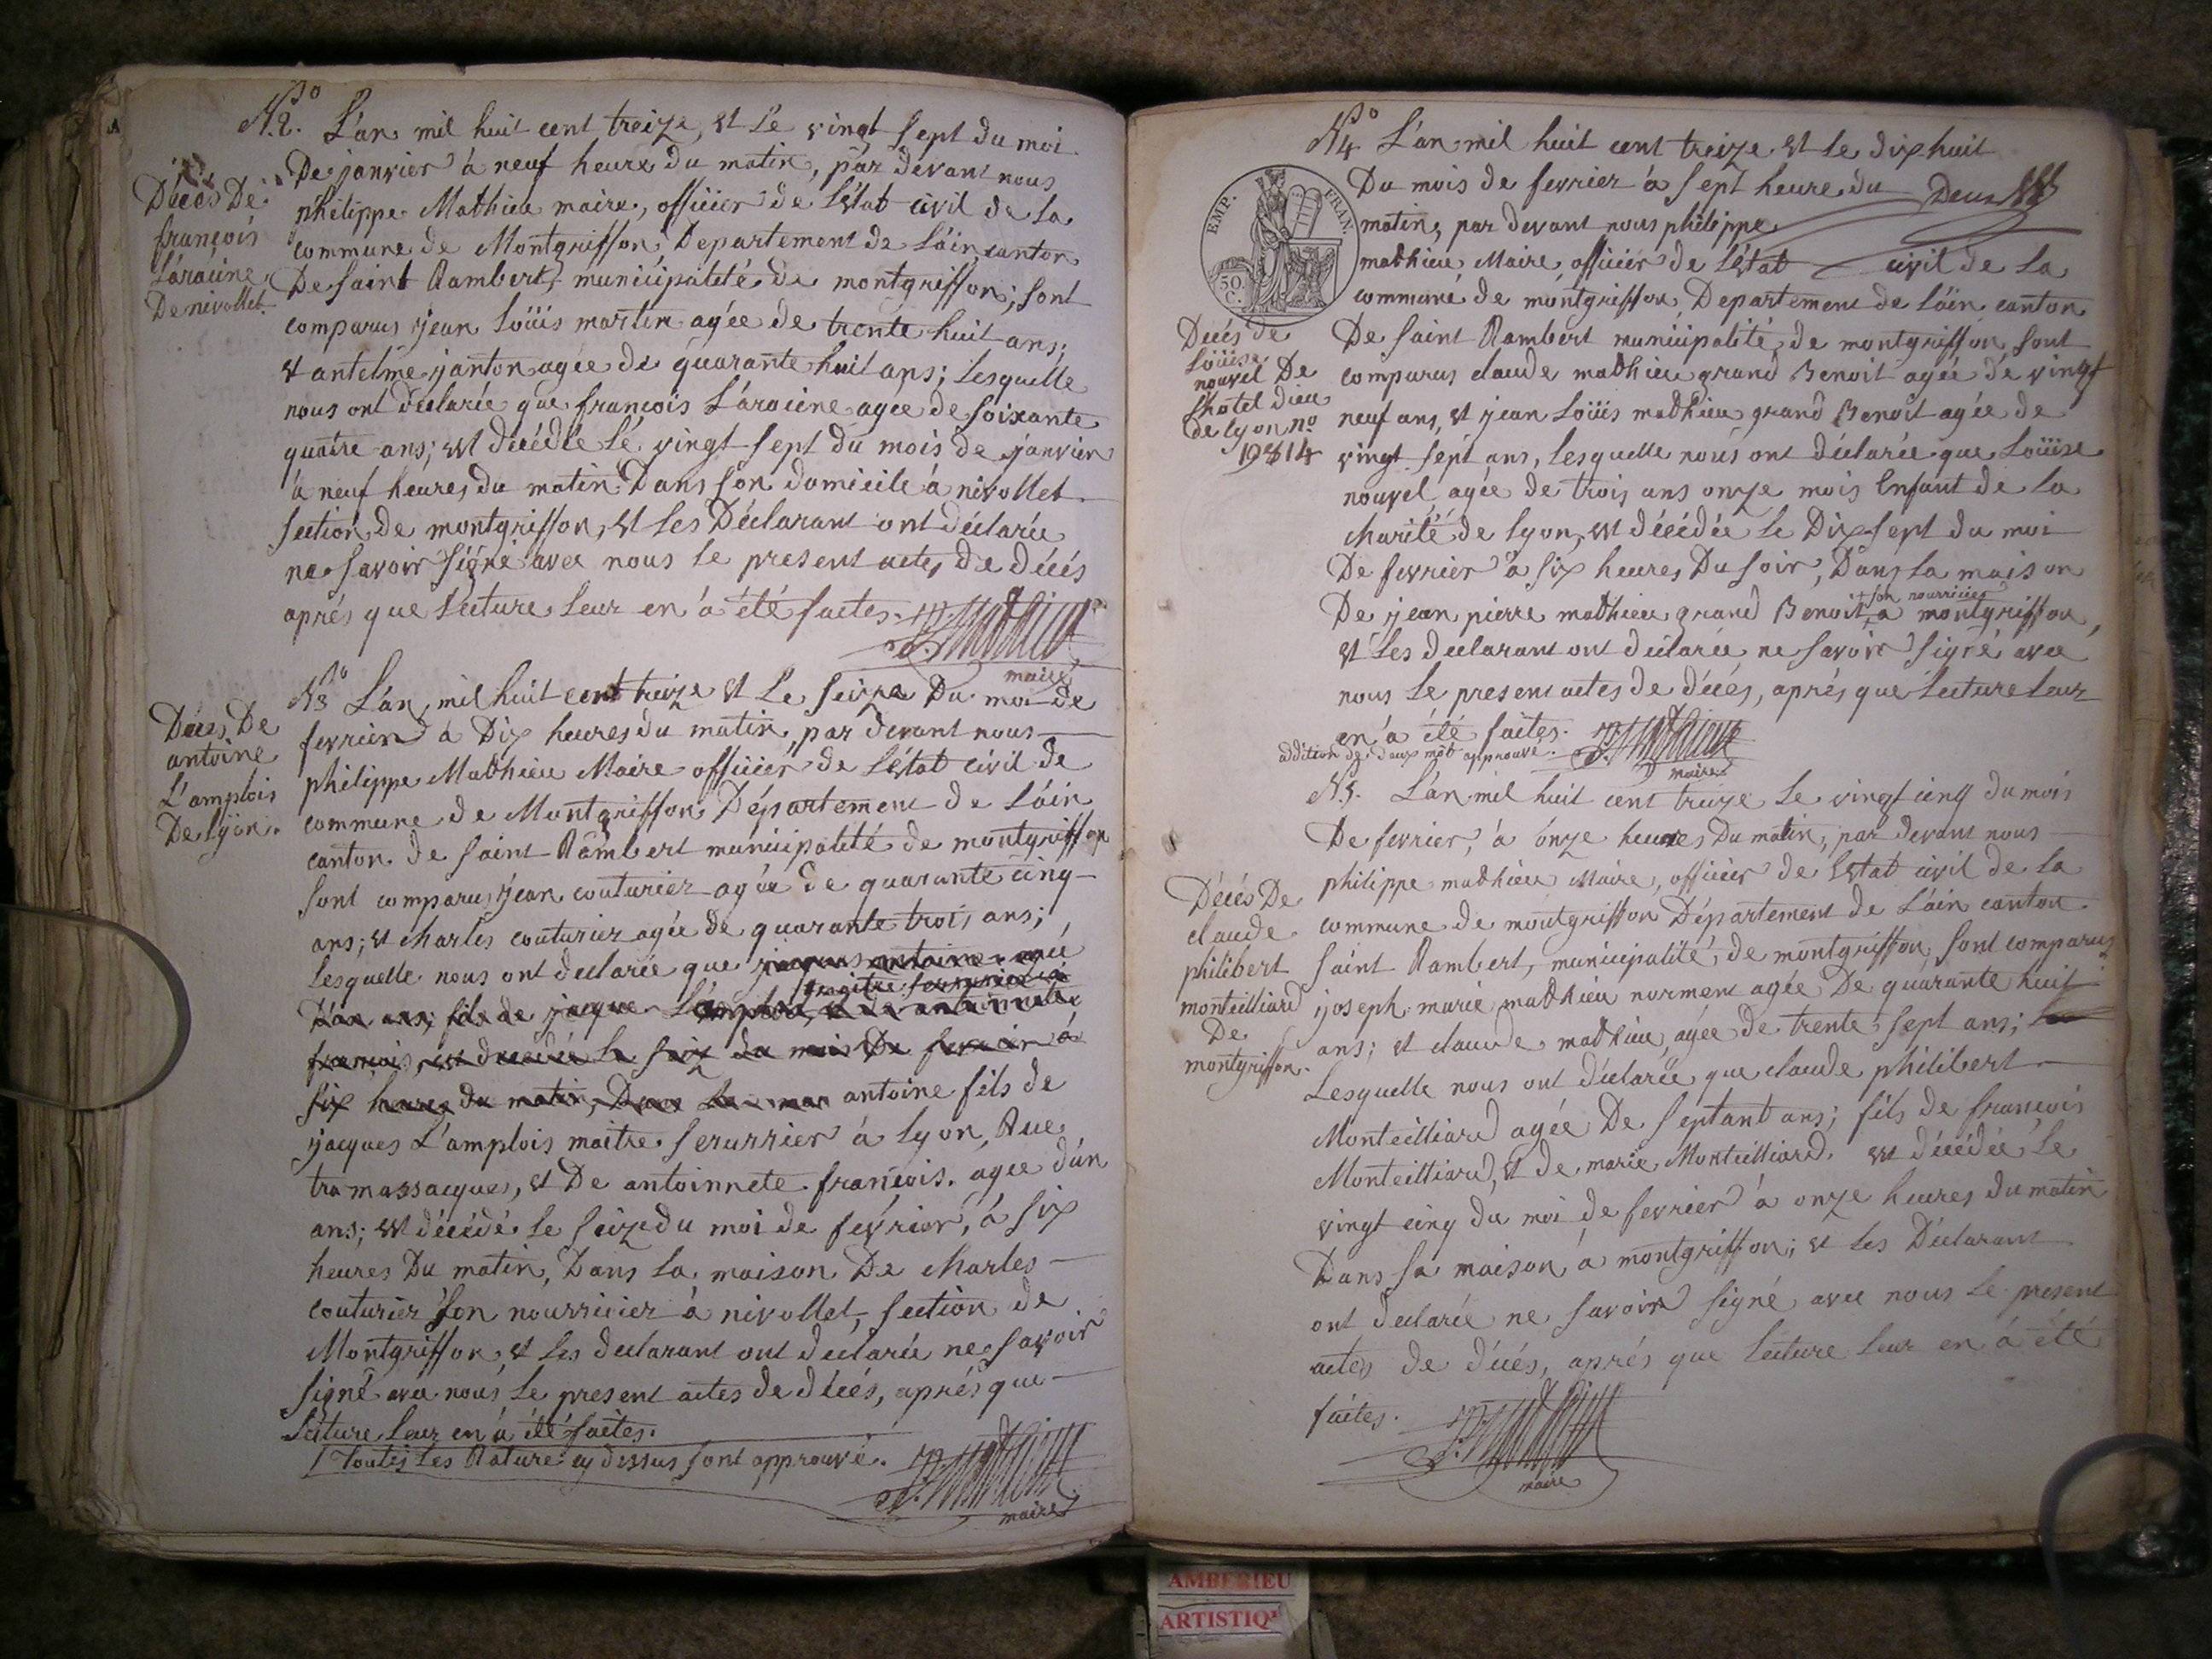 No 2. L'an mil huit cent treize, et le vingt sept du moi
De janvier à neuf heure du matin, par devant nous
philippe Mathieu maire, officier de l'état civil de la
commune de Montgriffon, Departement de l'ain, canton
De saint Rambert, municipalité de montgriffon; sont
comparus jean Loüis martin agée de trente huit ans;
et antelme janton agée de quarante huit ans; lesquelle
nous ont déclarée que françois L'aracine agee de soixante
quatre ans; est décédée le vingt sept du mois de janvier
à neuf heures du matin Dans son domicile à nivollet
section de montgriffon, et les Déclarant ont déclarée
ne savoir signé avec nous le present actes de décés
aprés que lecture leur en à été faites.
maire
Décés De
françois
L'aracine
De nivollet.
No 3 L'an mil huit cent treize et le seize Du moi de
fevrier à Dix heures du matin, par devant nous
philippe Mathieu Maire officier de l'état civil de
commune de Montgriffon Département de l'ain
canton de saint Rambert municipalité de montgriffon
sont comparus jean couturier agée de quarante cinq
ans; et charles couturier agée de quarante trois ans;
Lesquelle nous ont declarée que jacques antoine agé
maitre serrurier à
D'an ans; fils de jacque L'amplois, et de antoinnete
francois, est decedée le seize du mois De fevrier à
six heures du matin, Dans la antoine fils de
jacques L'amplois maitre serurrier à lyon, Rue
tramassacques, et De antoinnete françois. agee d'un
ans; est décédé le seize du moi de février, à six
heures Du matin, Dans la maison De charles
couturier son nourricier à nivollet, section de
Montgriffon, et les declarant ont declarée ne savoir
signé avec nous le present actes de décés, aprés que
lecture leur en à été faites.
Toutes les Rature cy dessus sont approuvé.
maire
Décés De
antoine
L'amplois
De lyon.
No 4 L'an mil huit cent treize et le dix huit
Du mois de fevrier à sept heure du
matin, par devant nous philippe
mathieu Maire officier de l'état civil de la
commune de montgriffon Departement de l'ain canton
De saint Rambert municipalité de montgriffon, sont
comparus claude mathieu grand Benoit agée de vingt
neuf ans, et jean Loüis mathieu grand Benoit agée de
vingt sept ans, lesquelle nous ont déclarée que Loüise
nouvel agée de trois ans onze mois Enfant de la
charité de lyon, est décédée le Dix sept du moi
De fevrier à six heures Du soir, Dans la maison
son nourricier
De jean pierre mathieu grand Benoit + à montgriffon,
et les declarant ont déclarée ne savoir signé avec
nous le present actes de décés, aprés que lecture leur
en à été faites.
addition de deux mot approuvé.
maire
EMP. FRAN.
50
C.
Decés de
Loüise
nouvel De
l'hôtel dieu
de lyon no
19814
N. 5. L'an mil huit cent treize le vingt cinq du mois
De fevrier, à onze heures Du matin, par devant nous
philippe mathieu Maire, officier de l'état civil de la
commune de montgriffon Département de l'ain canton
saint Rambert, municipalité de montgriffon, sont comparus
joseph marie mathieu norment agée De quarante huit
ans; et claude mathieu agée de trente sept ans;
Lesquelle nous ont déclarée que claude philibert
Monteilliard agée De septant ans; fils de francois
Monteilliard, et de marie Monteilliard. est décédée le
vingt cinq du moi de fevrier à onze heures du matin
Dans sa maison à montgriffon; et les Déclarant
ont declarée ne savoir signé avec nous le present
actes de décés, aprés que lecture leur en à été
faites.
maire
Décés De
claude
philibert
monteilliard
De
montgriffon.
AMBERIEU
ARTISTIQ